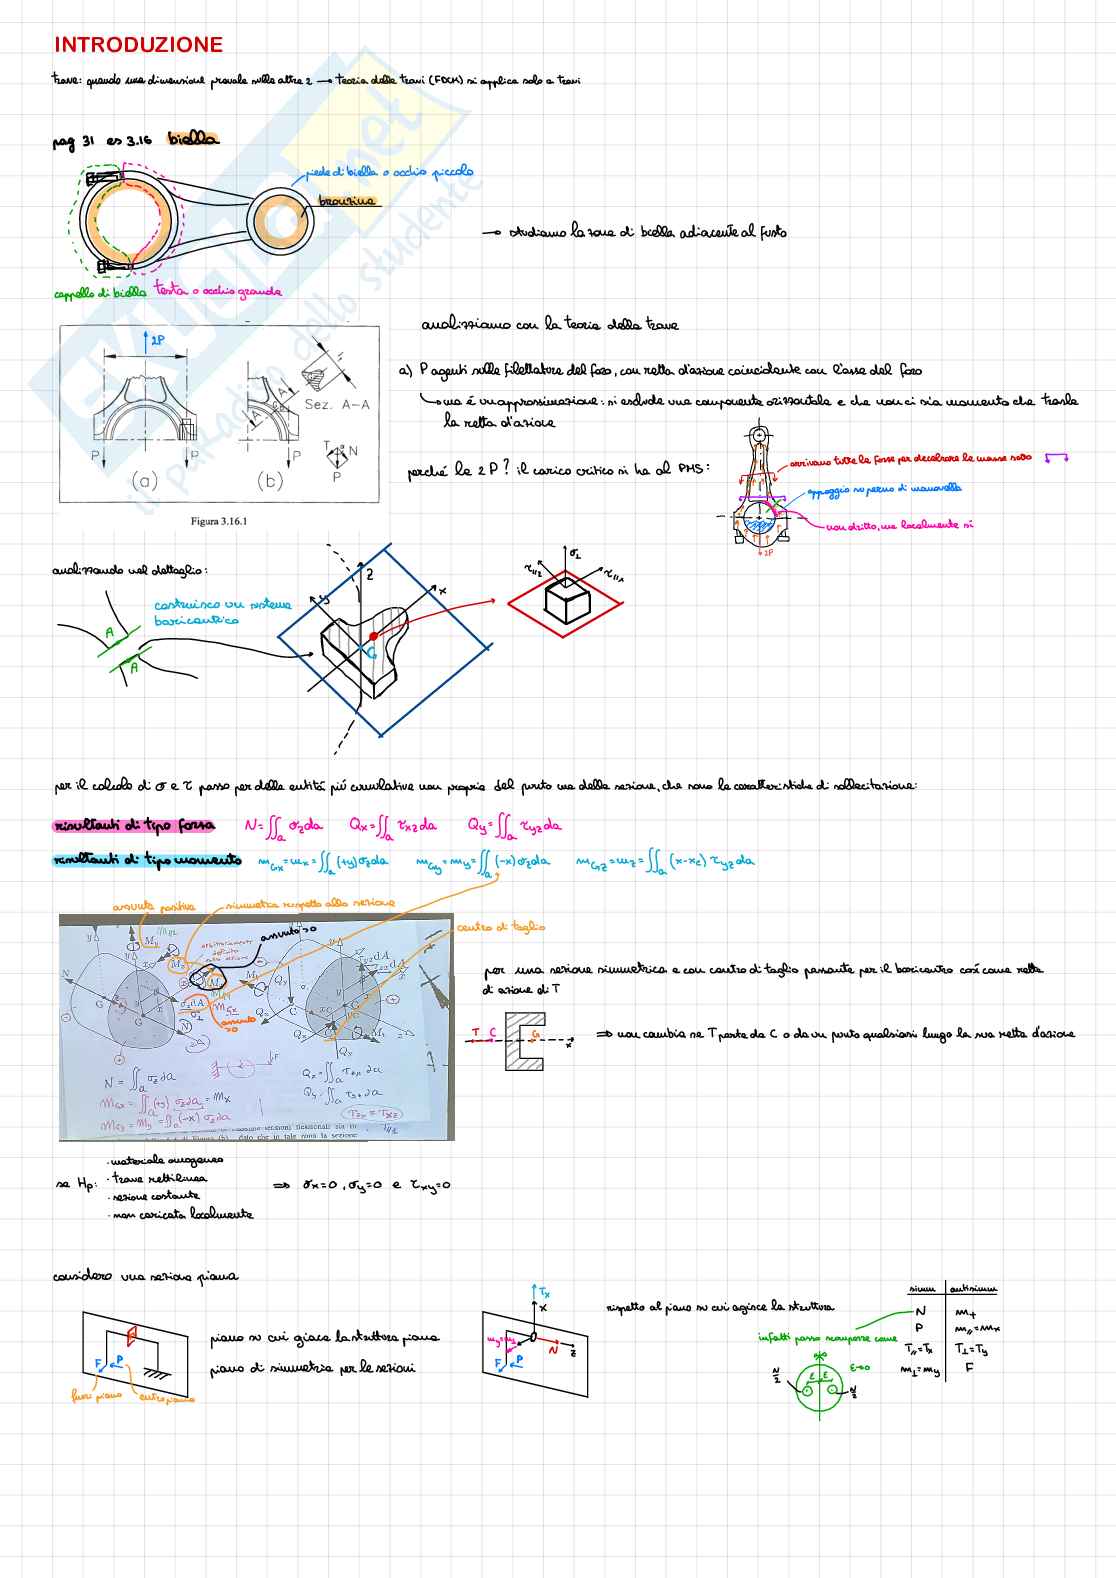 INTRODUZIONE
trave: quando una dimensione prevale sulle altre 2 → teoria delle travi (FDCM) si applica solo a travi
pag 31 es 3.16 biella
piede di biella o occhio piccolo
bronzina
→ studiamo la zona di biella adiacente al fusto
cappello di biella testa o occhio grande
analizziamo con la teoria della trave
a) P agenti sulle filettature del foro, con retta d'azione coincidente con l'asse del foro
ma é un approssimazione: si esclude una componente orizzontale e che non ci sia momento che trasla
la retta d'azione
2P
Sez. A-A
A
A
P
P
P
T
N
P
(a)
(b)
Figura 3.16.1
perché le 2P? il carico critico si ha al PMS:
arrivano tutte le forze per decelerare le masse sotto
appoggio su perno di manovella
non dritto, ma localmente si
2P
analizzando nel dettaglio:
costruisco un sistema
baricentrico
A
A
z
x
y
G
σ⊥
τ//2
τ//1
per il calcolo di σ e τ passo per delle entitá piú cumulative non proprie del punto ma della sezione, che sono le caratteristiche di sollecitazione:
risultanti di tipo forza N=∬a σz da Qx=∬a τxz da Qy=∬a τyz da
risultanti di tipo momento mGx=mx=∬a (+y)σz da mGy=my=∬a (-x)σz da mGz=mz=∬a (x-xc) τyz da
assunta positiva
simmetria rispetto alla sezione
assunto >0
centro di taglio
arbitrariamente
assunto
>0
N = ∬a σz da
mGx = ∬a (+y) σz da = mx
mGy = my = ∬a (-x) σz da
Qx = ∬a τzx da
Qy = ∬a τzy da
τzx = τxz
per una sezione simmetrica e con centro di taglio passante per il baricentro cosí come retta
di azione di T
T C G x
⇒ non cambia se T parte da C o da un punto qualsiasi lungo la sua retta d'azione
se Hp:
· materiale omogeneo
· trave rettilinea
· sezione costante
· non caricata localmente
⇒ σx=0, σy=0 e τxy=0
considero una sezione piana
F
P
fuori piano
entro piano
piano su cui giace la struttura piana
piano di simmetria per le sezioni
Tx
x
my=m⊥
N
z
F
P
rispetto al piano su cui agisce la struttura
infatti posso scomporre come
N/2
ε ε
ε→0
N/2
simm antisimm
N mt
P m//=mx
T//=Tx T⊥=Ty
m⊥=my F